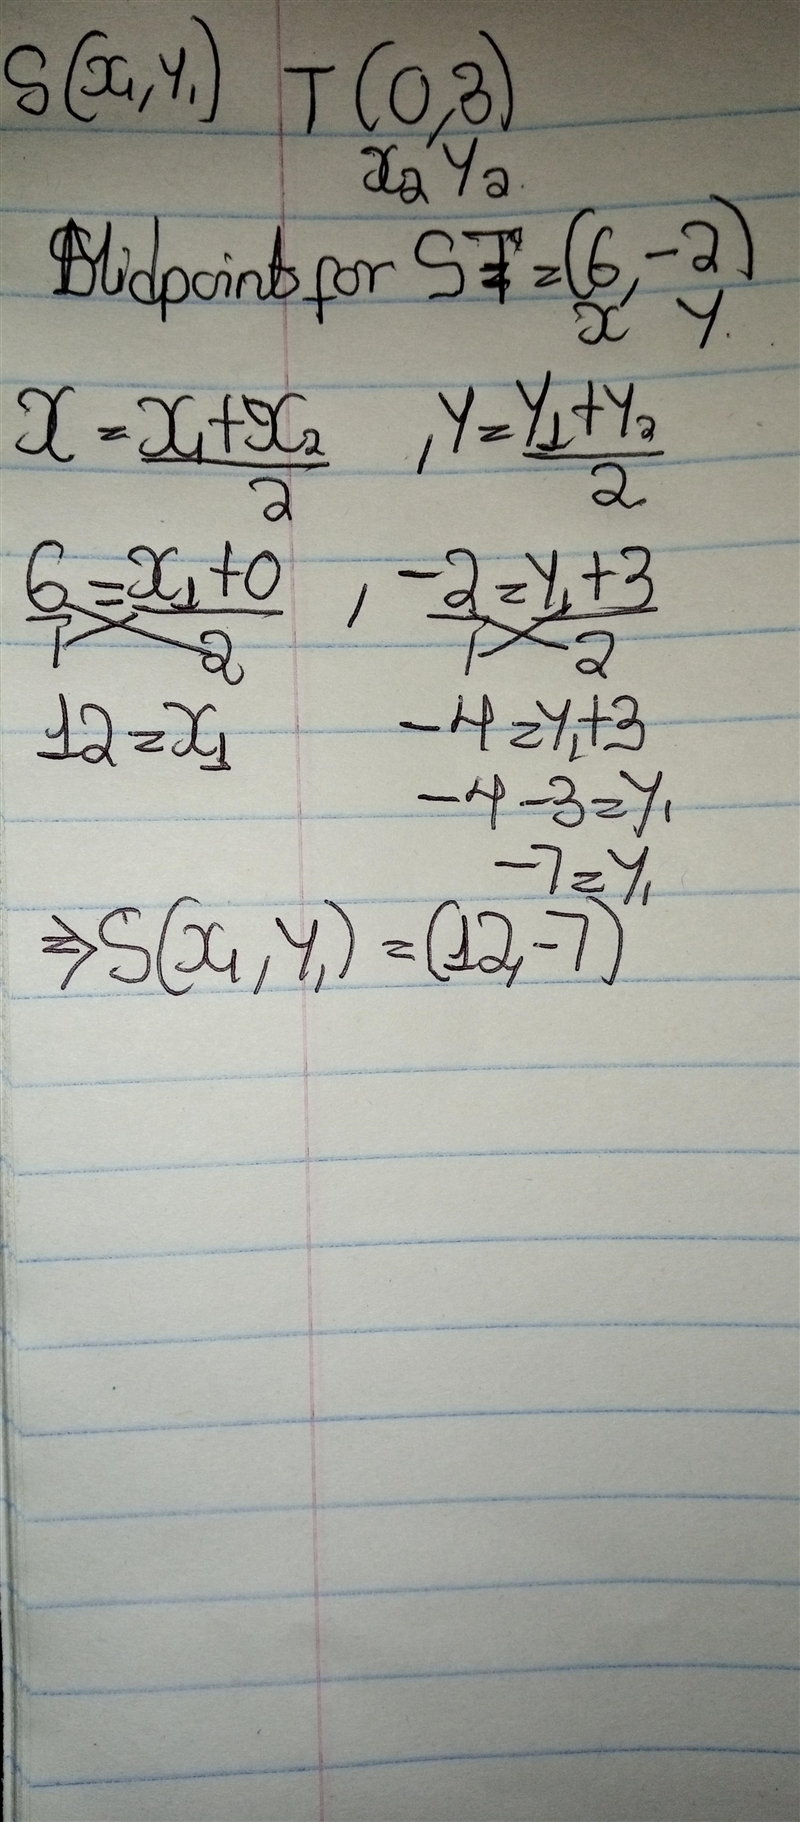 S(x₁, y₁) T(0,3)
x₂ y₂.
Midpoints for ST = (6, -2)
x y.
x = x₁+x₂/2 , y = y₁+y₂/2
6/1 = x₁+0/2 , -2/1 = y₁+3/2
12 = x₁ -4 = y₁+3
-4 -3 = y₁
-7 = y₁
⇒ S(x₁, y₁) = (12, -7)